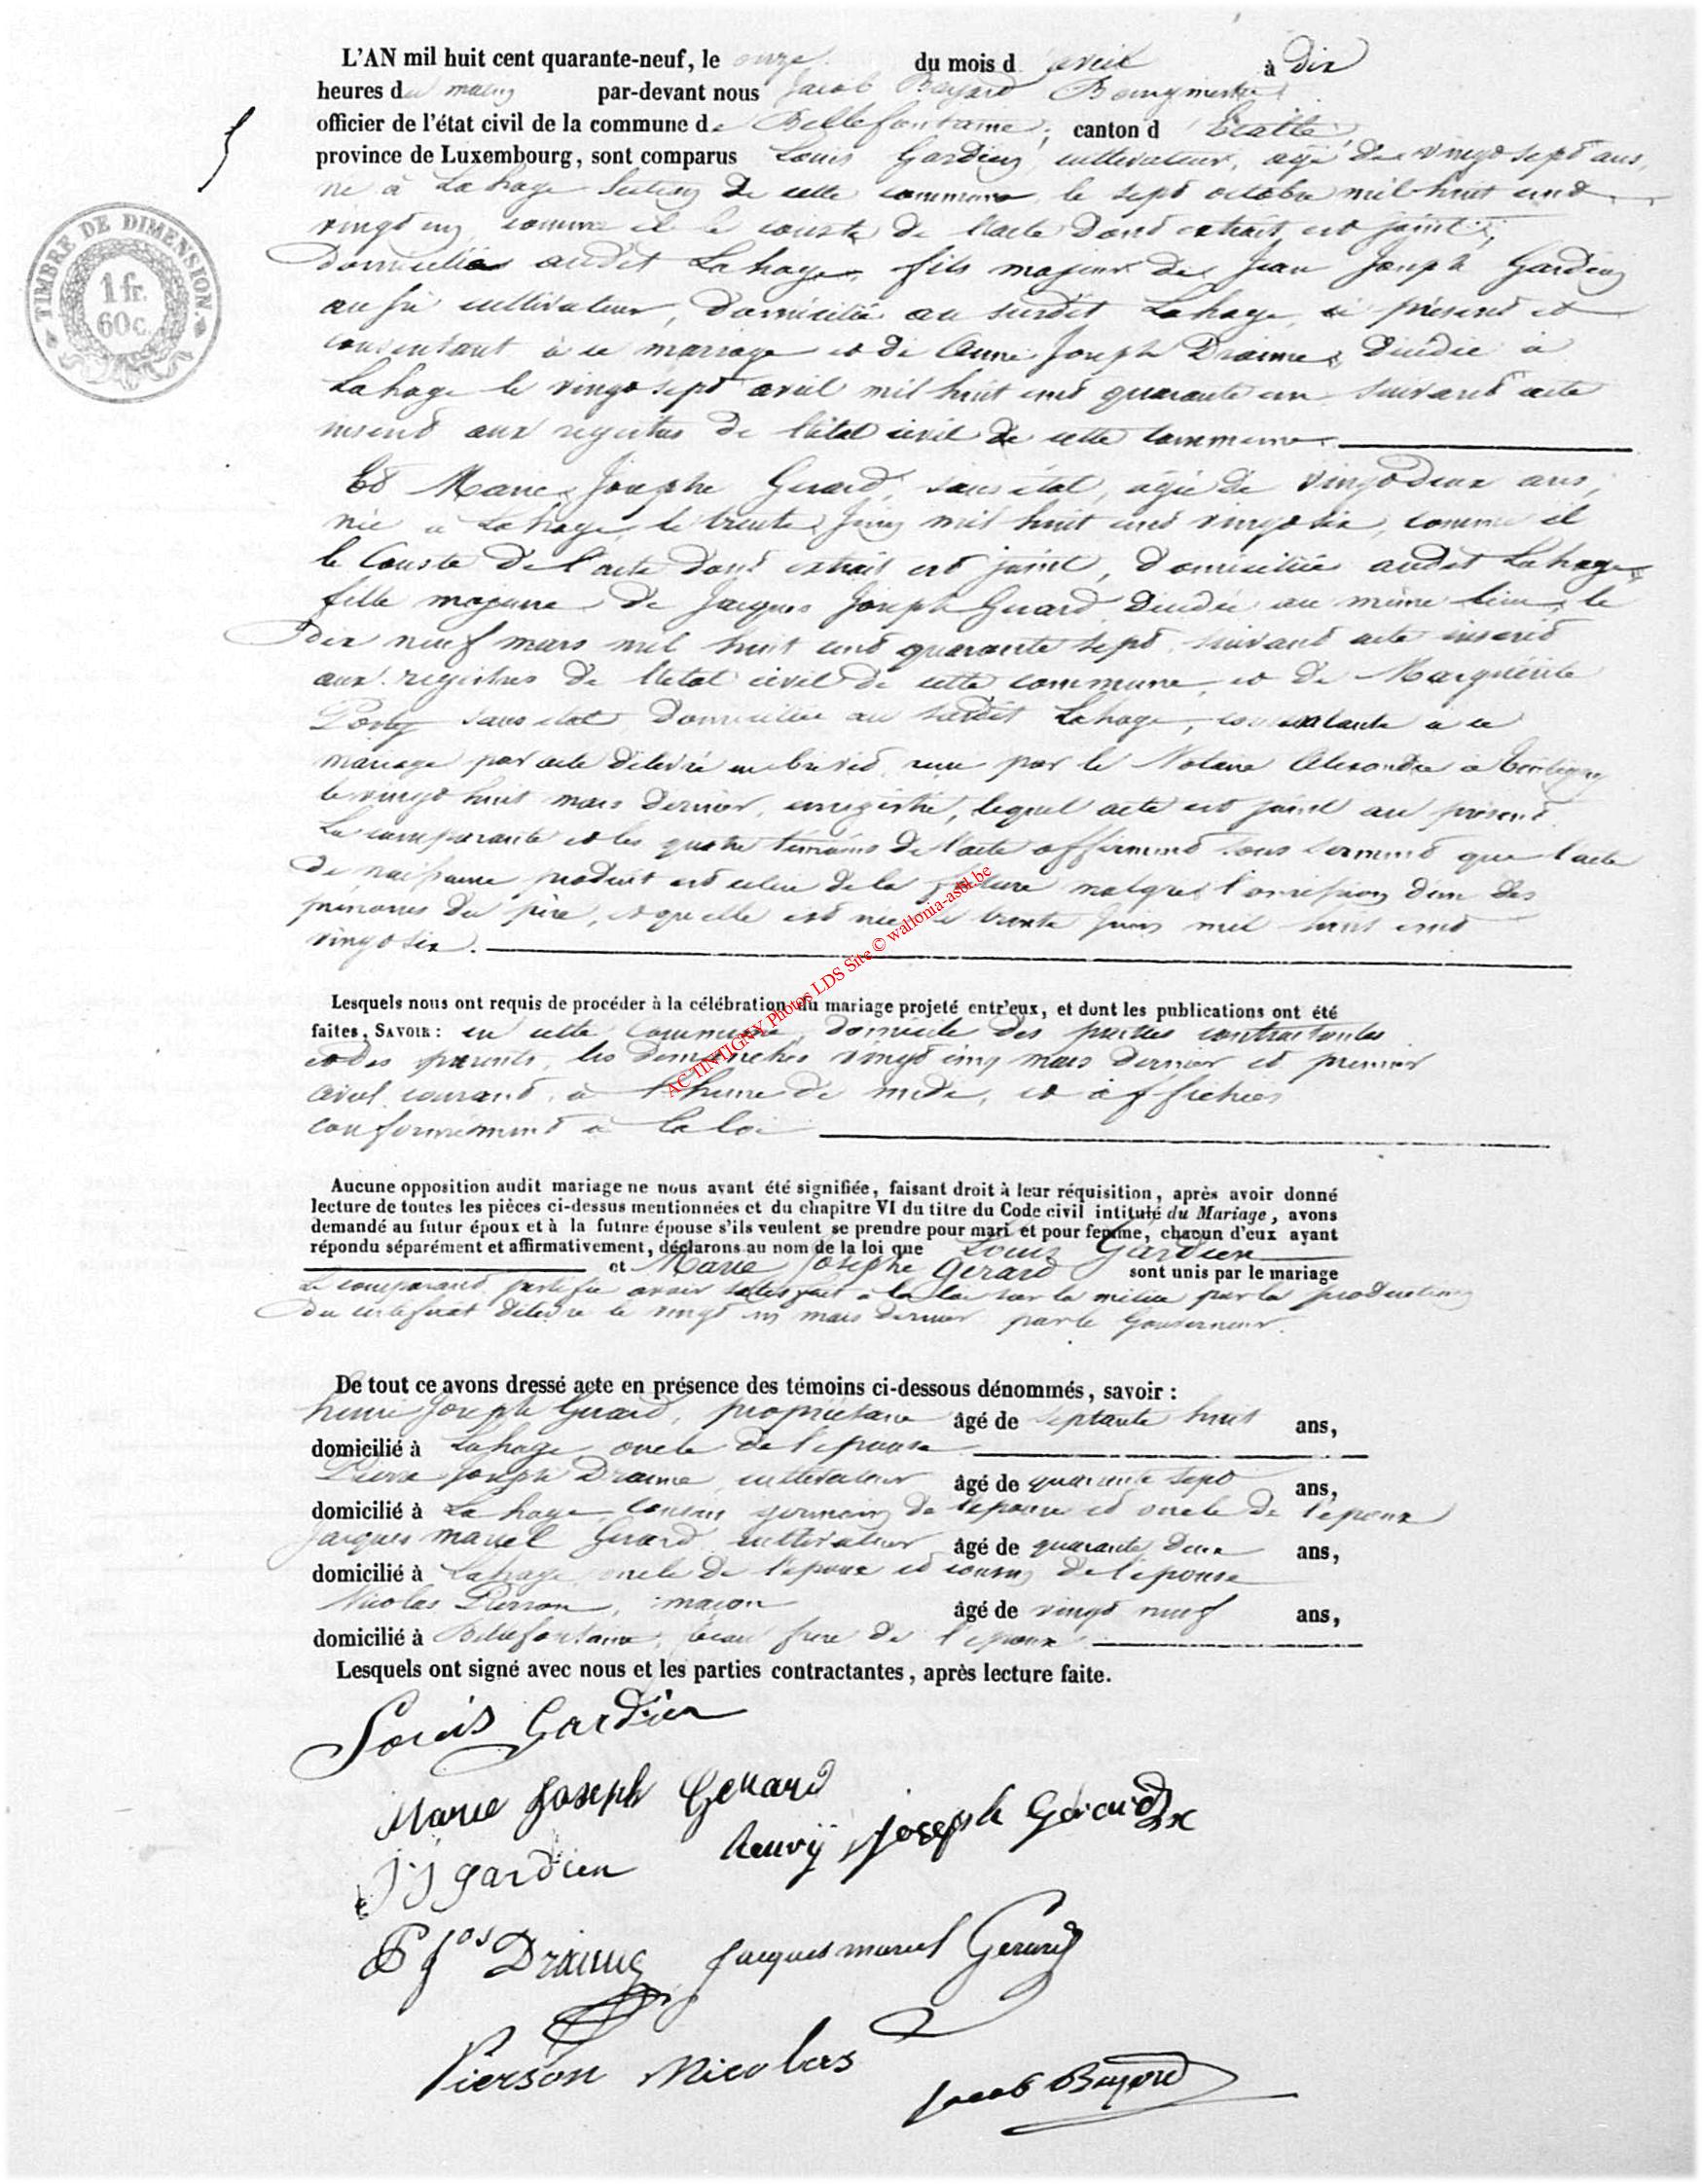 L'AN mil huit cent quarante-neuf, le onze du mois d'avril à dix
heures du matin par-devant nous Jacob Bayard Bourgmestre
officier de l'état civil de la commune de Bellefontaine, canton d'Etalle,
province de Luxembourg, sont comparus Louis Gardien, cultivateur, agé de vingt sept ans,
né à Lahage section de cette commune le sept octobre mil huit cent
vingt un, comme il le conste de l'acte dont extrait est joint,
domicilié audit Lahage, fils majeur de Jean Joseph Gardien
aussi cultivateur, domicilié au surdit Lahage, ci présent et
consentant à ce mariage et de Anne Joseph Draime, décédée à
Lahage le vingt sept avril mil huit cent quarante un suivant acte
inscrit aux registres de l'état civil de cette commune.
Et Marie Josephe Gerard, sans état, agée de vingt deux ans,
née à Lahage, le trente juin mil huit cent vingt six, comme il
le conste de l'acte dont extrait est joint, domiciliée audit Lahage,
fille majeure de Jacques Joseph Gerard décédé au même lieu, le
dix neuf mars mil huit cent quarante sept, suivant acte inscrit
aux registres de l'état civil de cette commune, et de Marguerite
sans état, domiciliée au surdit Lahage, consentante à ce
mariage par acte délivré en brevet, reçu par le Notaire Alexandre à Tintigny
le vingt huit mars dernier, enregistré, lequel acte est joint au présent.
La comparante et les quatre témoins de l'acte affirment sous serment que l'acte
de naissance produit est celui de la future malgré l'omission d'un des
prénoms du père, et qu'elle est née le trente juin mil huit cent
vingt six.
AC TINTIGNY Photos LDS Site © wallonia-asbl.be
Lesquels nous ont requis de procéder à la célébration du mariage projeté entr'eux, et dont les publications ont été
faites, SAVOIR : en cette commune, domicile des parties contractantes
et des parents, les dimanches vingt cinq mars dernier et premier
avril courant, à l'heure de midi, et affichées
conformément à la loi
Aucune opposition audit mariage ne nous ayant été signifiée, faisant droit à leur réquisition, après avoir donné
lecture de toutes les pièces ci-dessus mentionnées et du chapitre VI du titre du Code civil intitulé du Mariage, avons
demandé au futur époux et à la future épouse s'ils veulent se prendre pour mari et pour femme, chacun d'eux ayant
répondu séparément et affirmativement, déclarons au nom de la loi que Louis Gardien
et Marie Josephe Gerard sont unis par le mariage
Le comparant justifie avoir satisfait à la loi sur la milice par la production
du certificat délivré le vingt mars dernier par le Gouverneur.
De tout ce avons dressé acte en présence des témoins ci-dessous dénommés, savoir :
henri Joseph Gerard, propriétaire âgé de septante huit ans,
domicilié à Lahage, oncle de l'épouse
Pierre Joseph Draime, cultivateur âgé de quarante sept ans,
domicilié à Lahage, cousin germain de l'épouse et oncle de l'époux
Jacques marcel Gerard cultivateur âgé de quarante deux ans,
domicilié à Lahage oncle de l'époux et cousin de l'épouse
Nicolas Pierson, maçon âgé de vingt neuf ans,
domicilié à Bellefontaine, beau frère de l'époux
Lesquels ont signé avec nous et les parties contractantes, après lecture faite.
Louis Gardien
Marie Joseph Gerard
henry joseph Gérard
JJ gardien
P Jos Draime
Jacques marcel Gerard
Pierson Nicolas
Jacob Bayard
TIMBRE DE DIMENSION.
1 fr.
60c.